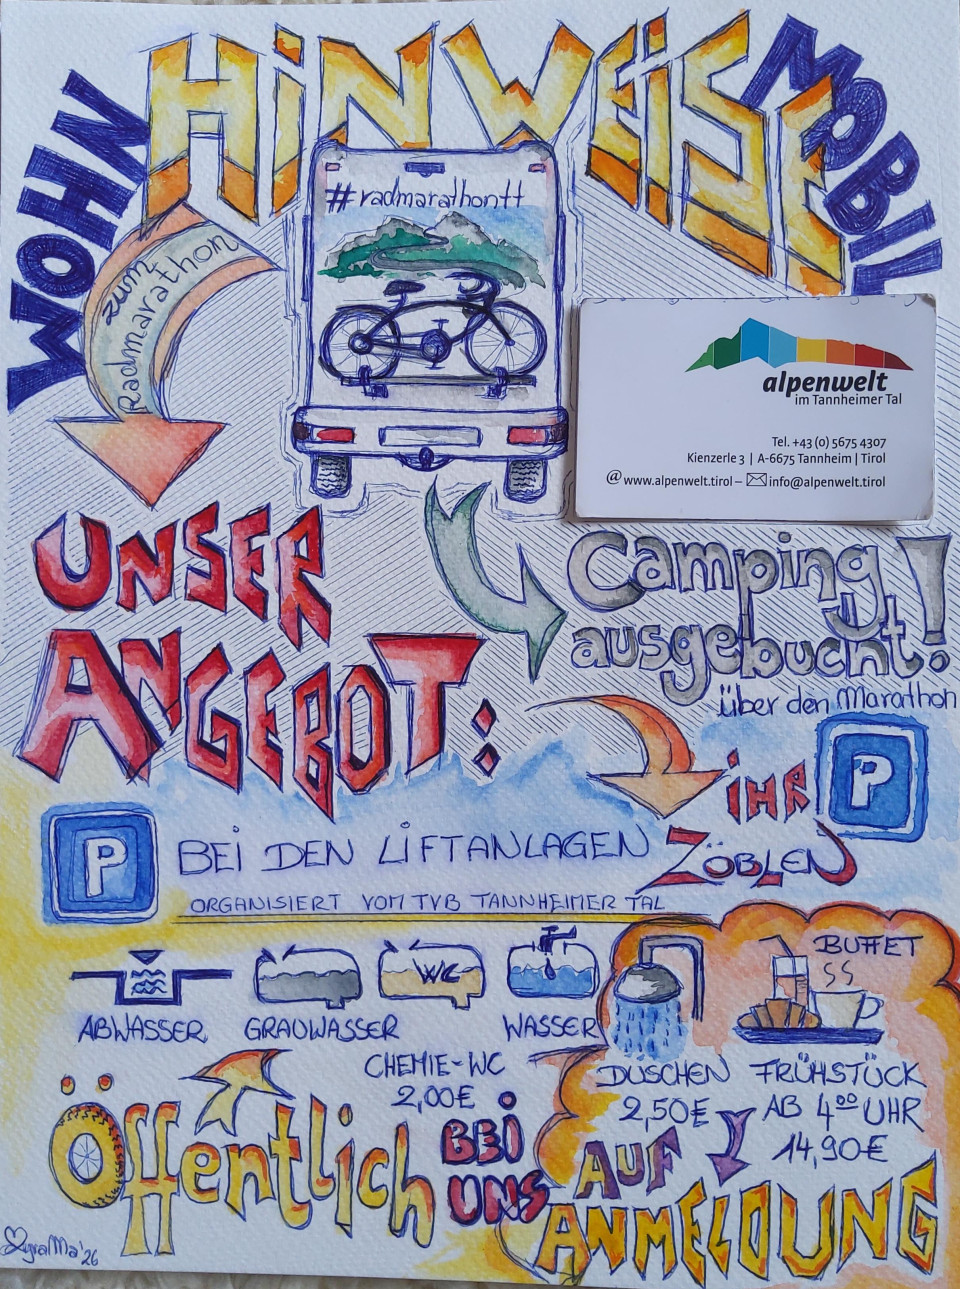 WOHN
HINWEISE
MOBIL
#radmarathontt
zum
Radmarathon
alpenwelt
im Tannheimer Tal
Tel. +43 (0) 5675 4307
Kienzerle 3 | A-6675 Tannheim | Tirol
@www.alpenwelt.tirol – info@alpenwelt.tirol
UNSER
ANGEBOT:
Camping
ausgebucht!
über den Marathon
IHR
P
ZÖBLEN
P
BEI DEN LIFTANLAGEN
ORGANISIERT VOM TVB TANNHEIMER TAL
WC
BUFFET
ABWASSER,
GRAUWASSER
WASSER
CHEMIE-WC
2,00€
DUSCHEN
2,50€
FRÜHSTÜCK
AB 4⁰⁰ UHR
14,90€
Öffentlich
BEI
UNS
AUF
ANMELDUNG